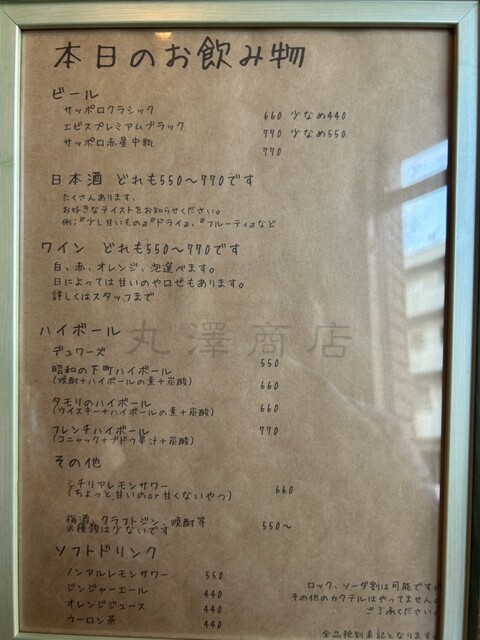 本日のお飲み物
ビール
サッポロクラシック 660 少なめ440
エビスプレミアムブラック 770 少なめ550
サッポロ赤星中瓶 770
日本酒 どれも550～770です
たくさんあります、
お好きなテイストをお知らせください。
例:『少し甘いもの』『ドライ』、『フルーティ』など
ワイン どれも550～770です
白、赤、オレンジ、泡選べます。
日によっては甘いのやロゼもあります。
詳しくはスタッフまで
ハイボール
丸澤商店
デュワーズ 550
昭和の下町ハイボール 660
(焼酎+ハイボールの素+炭酸)
タモリのハイボール 660
(ウイスキー+ハイボールの素+炭酸)
フレンチハイボール 770
(コニャック+ブドウ果汁+炭酸)
その他
シチリアレモンサワー 660
(ちょっと甘いのor甘くないやつ)
梅酒、クラフトジン、焼酎等 550～
※種類は少ないです
ソフトドリンク
ノンアルレモンサワー 550
ジンジャーエール 440
オレンジジュース 440
ウーロン茶 440
ロック、ソーダ割は可能です。
その他のカクテルはやってません。
ご了承ください。
全品税別表記となります